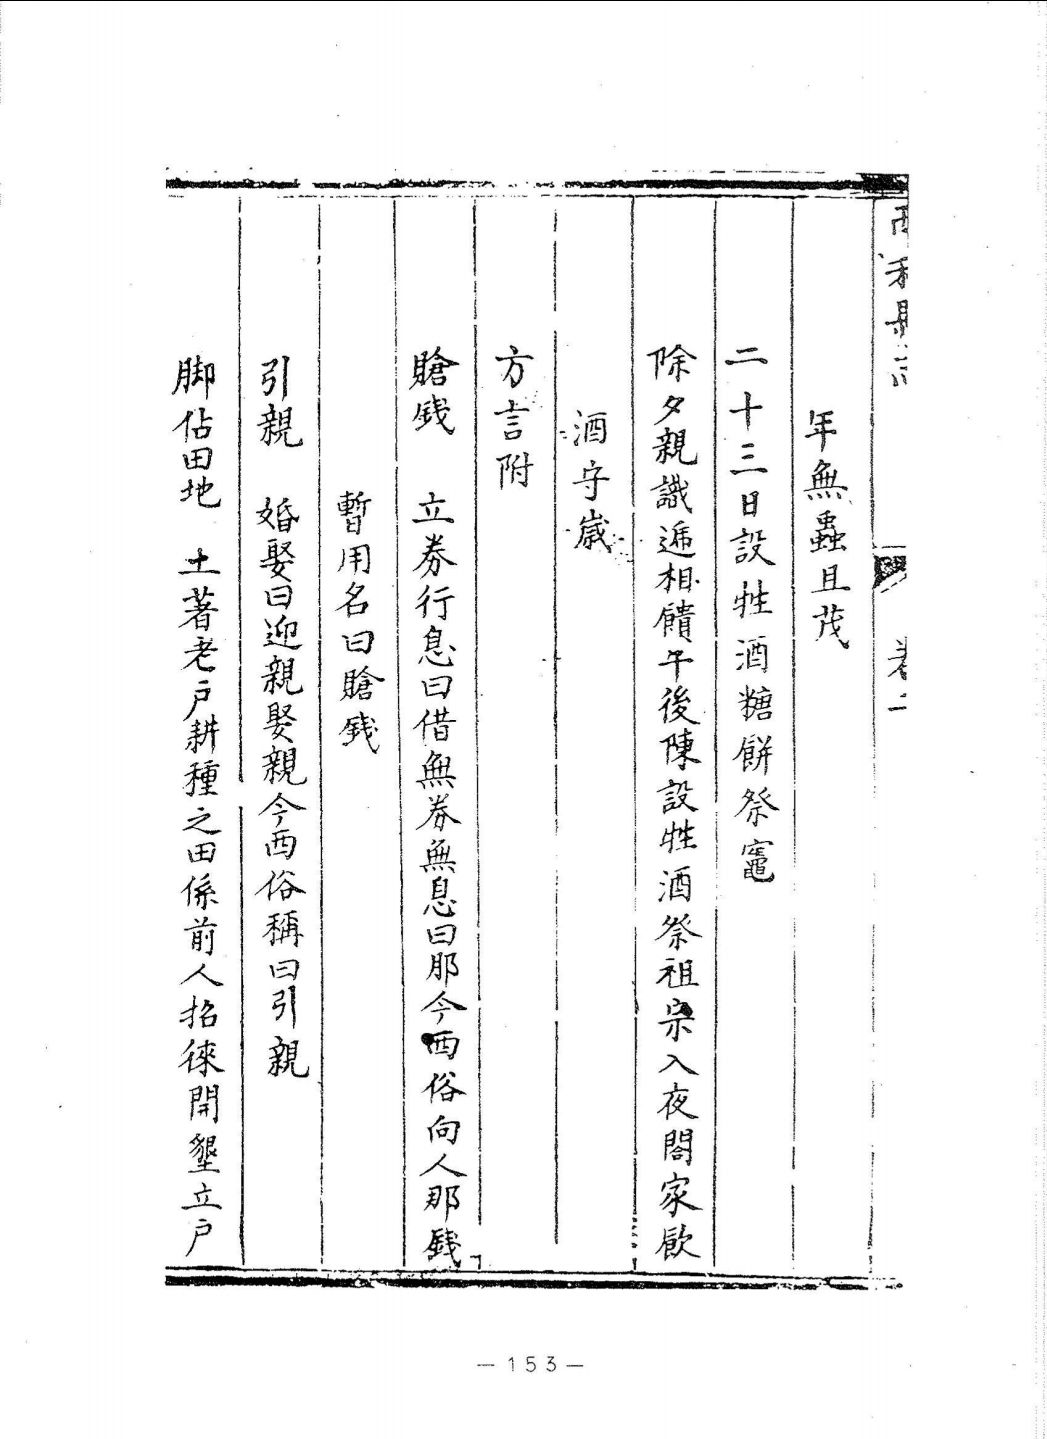 西和縣志
卷二
年無蟲且茂
二十三日設牲酒糖餅祭竈
除夕親識遞相饋午後陳設牲酒祭祖宗入夜閤家飲
酒守嵗
方言附
賒錢 立券行息曰借無券無息曰那今西俗向人那錢
暫用名曰賒錢
引親 婚娶曰迎親娶親今西俗稱曰引親
脚佔田地 土著老戶耕種之田係前人招徠開墾立戶
—153—